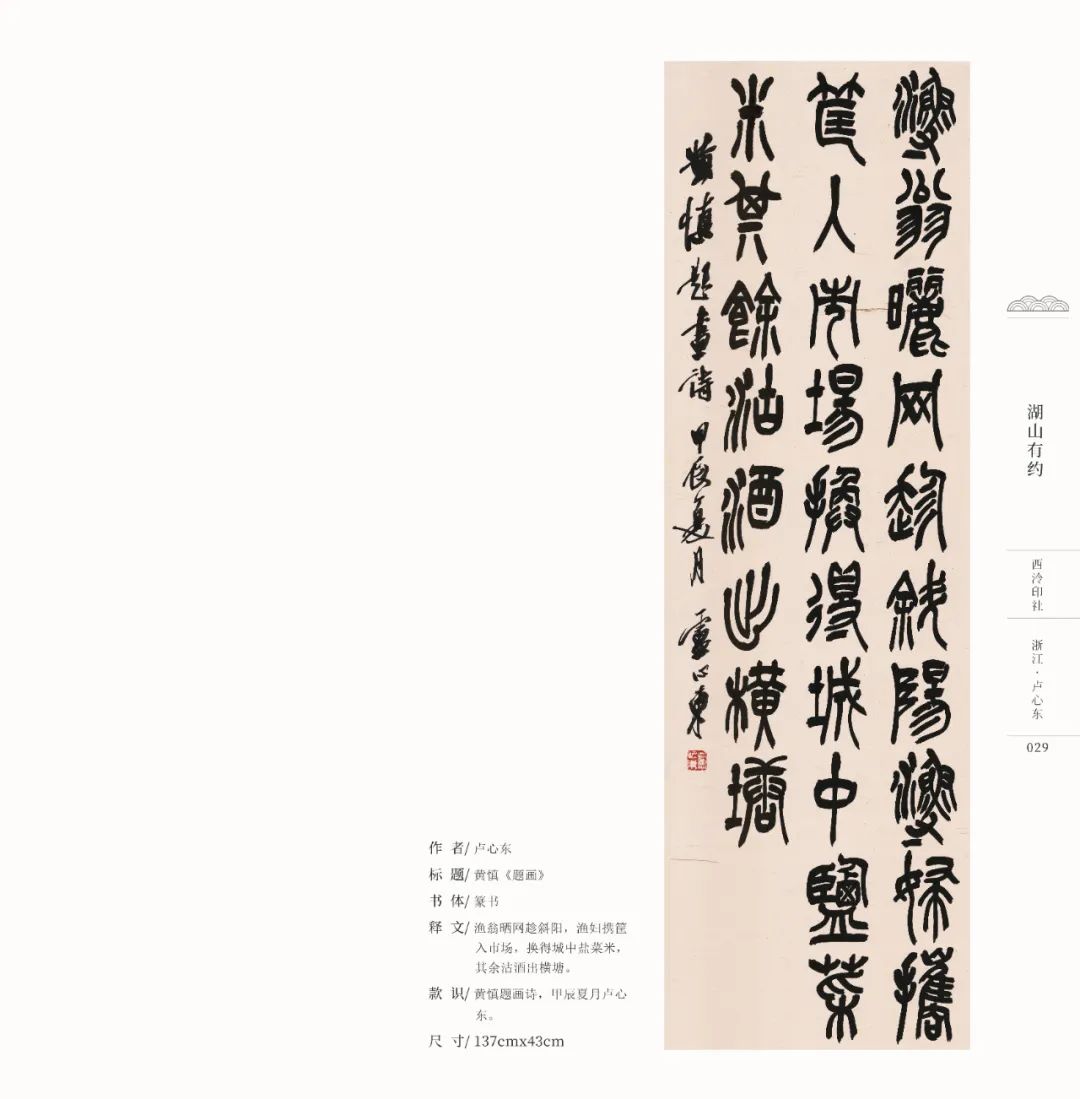 漁翁曬网趁斜陽漁婦攜
筐入市場換得城中鹽菜
米其餘沽酒出橫塘
黄慎題畫詩 甲辰夏月 盧心東
湖山有约
西泠印社
浙江·卢心东
029
作 者/ 卢心东
标 题/ 黄慎《题画》
书 体/ 篆书
释 文/ 渔翁晒网趁斜阳，渔妇携筐
入市场，换得城中盐菜米，
其余沽酒出横塘。
款 识/ 黄慎题画诗，甲辰夏月卢心
东。
尺 寸/ 137cmx43cm